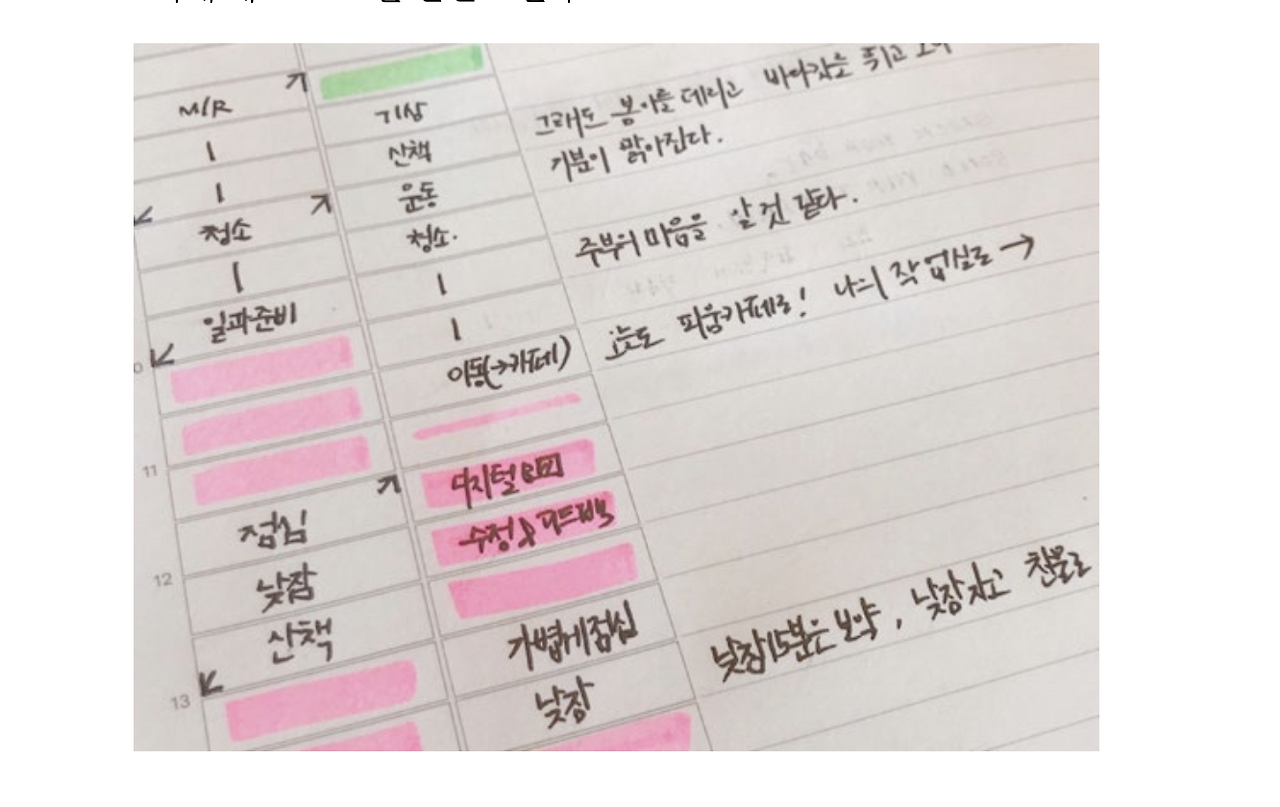 M/R
기상
그래도 봄이를 데리고 바아랴을 쥐고 오면
산책
기분이 맑아진다.
운동
청소
청소.
주부의 마음을 알 것 같다.
일과준비
이동(→카페)
오늘도 피움카페로! 나의 작업실로 →
11
디지털
수정 & 피드백
점심
12
낮잠
산책
가볍게점심
낮잠15분은 보약, 낮잠자고 찬물로
13
낮잠